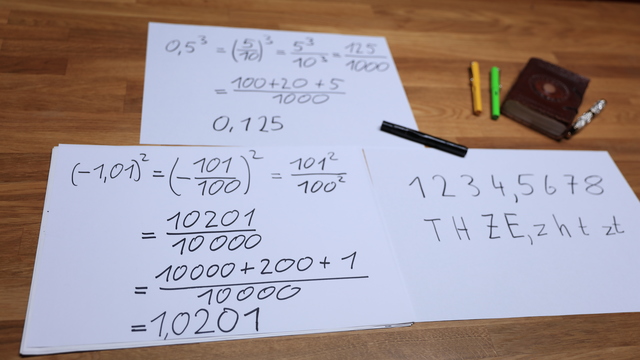 0,5³ = (5/10)³ = 5³/10³ = 125/1000
= 100+20+5/1000
0,125
(-1,01)² = (-101/100)² = 101²/100²
= 10201/10000
= 10000+200+1/10000
=1,0201
1 2 3 4,5 6 7 8
T H Z E, z h t zt